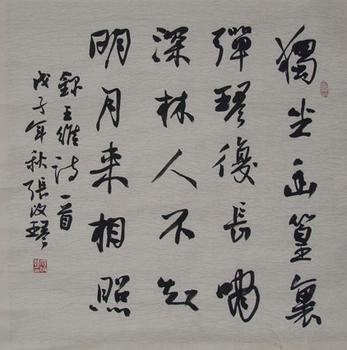 獨坐幽篁裏
彈琴復長嘯
深林人不知
明月来相照
錄王維诗一首
戊子年秋張琴